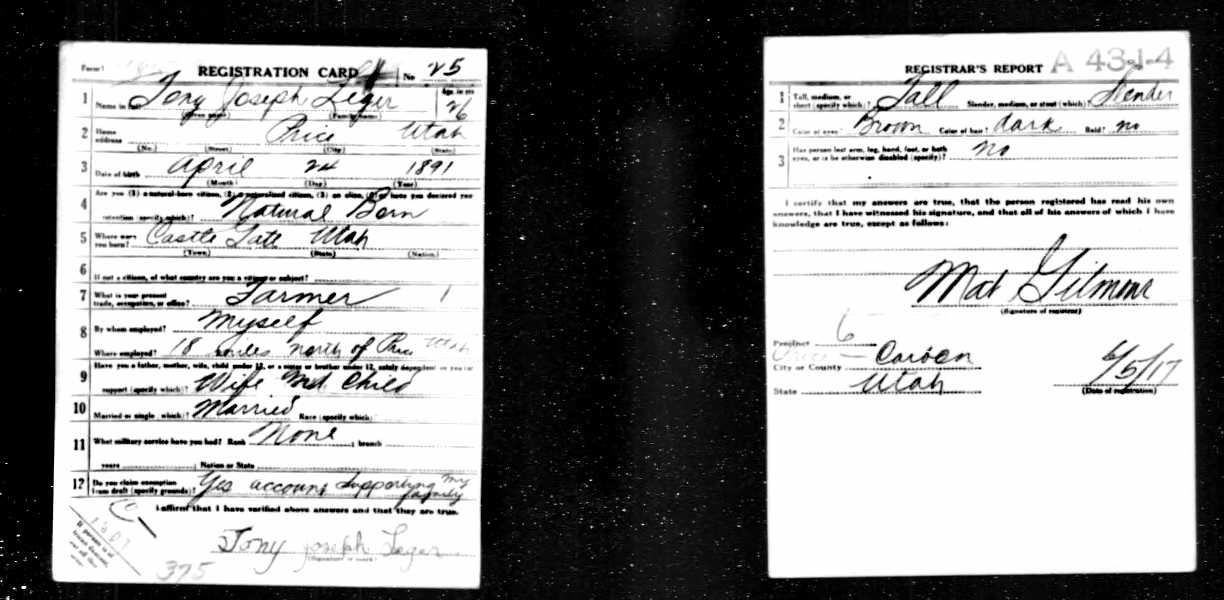 Form 1
REGISTRATION CARD No 25
1 Name in full Tony Joseph Leger Age, in yrs 26
(Given name) (Family name)
2 Home address Price Utah
(No.) (Street) (City) (State)
3 Date of birth April 24 1891
(Month) (Day) (Year)
4 Are you (1) a natural-born citizen, (2) a naturalized citizen, (3) an alien, (4) or have you declared your
intention (specify which)? Natural Born
5 Where were you born? Castle Gate Utah
(Town) (State) (Nation)
6 If not a citizen, of what country are you a citizen or subject?
7 What is your present trade, occupation, or office? Farmer
8 By whom employed? Myself
Where employed? 18 miles north of Price Utah
9 Have you a father, mother, wife, child under 12, or a sister or brother under 12, solely dependent on you for
support (specify which)? Wife and Child
10 Married or single (which)? Married Race (specify which)
11 What military service have you had? Rank None ; branch
years ; Nation or State
12 Do you claim exemption from draft (specify grounds)? Yes account supporting my family
I affirm that I have verified above answers and that they are true.
Tony Joseph Leger
(Signature or mark)
If person is of
375
REGISTRAR'S REPORT A 43-1-4
1 Tall, medium, or short (specify which)? Tall Slender, medium, or stout (which)? Slender
2 Color of eyes? Brown Color of hair? dark Bald? no
3 Has person lost arm, leg, hand, foot, or both eyes, or is he otherwise disabled (specify)? no
I certify that my answers are true, that the person registered has read his own
answers, that I have witnessed his signature, and that all of his answers of which I have
knowledge are true, except as follows:
Mat Gilmour
(Signature of registrar)
Precinct 6
City or County Price — Carbon
State Utah 6/5/17
(Date of registration)